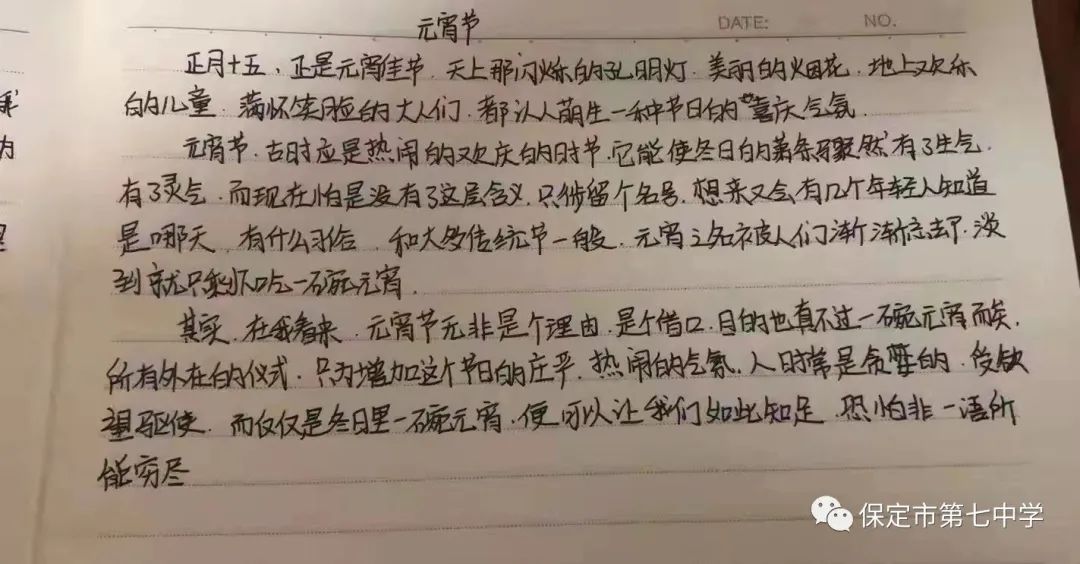 元宵节
DATE:
NO.
正月十五，正是元宵佳节，天上那闪烁的孔明灯，美丽的烟花，地上欢乐
的儿童，满怀笑脸的大人们，都让人萌生一种节日的喜庆气氛
元宵节，古时应是热闹的欢庆的时节，它能使冬日的萧条骤然有了生气，
有了灵气，而现在怕是没有了这层含义，只残留个名号，想来又会有几个年轻人知道
是哪天，有什么习俗，和大多传统节一般，元宵之名被人们渐渐忘却，淡
到就只剩怀吃一碗元宵，
其实，在我看来，元宵节无非是个理由，是个借口，目的也真不过一碗元宵而矣，
所有外在的仪式，只为增加这个节日的庄严，热闹的气氛，人时常是贪婪的，受欲
望驱使，而仅仅是冬日里一碗元宵，便可以让我们如此知足，恐怕非一语所
能穷尽
为
保定市第七中学